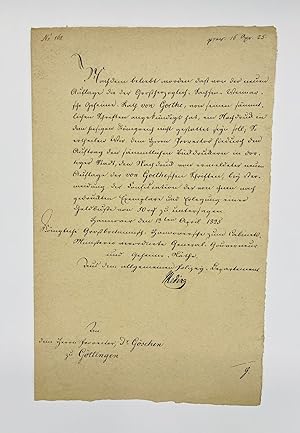 No 161. praes. 16 Apr. 25.
Nachdem beliebt worden daß von der neuen
Auflage die der Großherzoglich-Sachsen-Weimar-
sche Geheime-Rath von Goethe, von seinen sämmt-
lichen Schriften angekündigt hat, ein Nachdruck in
dem hiesigen Königreich nicht gestattet seyn soll; So
erhalten der Herr Prorector hiedurch den
Auftrag den sämmtlichen Buchdruckern in der
Stadt, den Nachdruck von vermeldeter neuen
Auflage der von Goetheschen Schriften, bey Ver-
meidung der Confiscation der von ihnen nach-
gedruckten Exemplare und Erlegung einer
Geldbuße von 50 zu untersagen
Hannover den 12ten April 1825
Königliche Großbritannisch-Hannoversche zum Cabinets-
Ministerio verordnete General-Gouverneur
und Geheime-Räthe.
Aus dem allgemeinen Polizey-Departement
An
den Herrn Prorector, Dr. Göschen
zu Göttingen